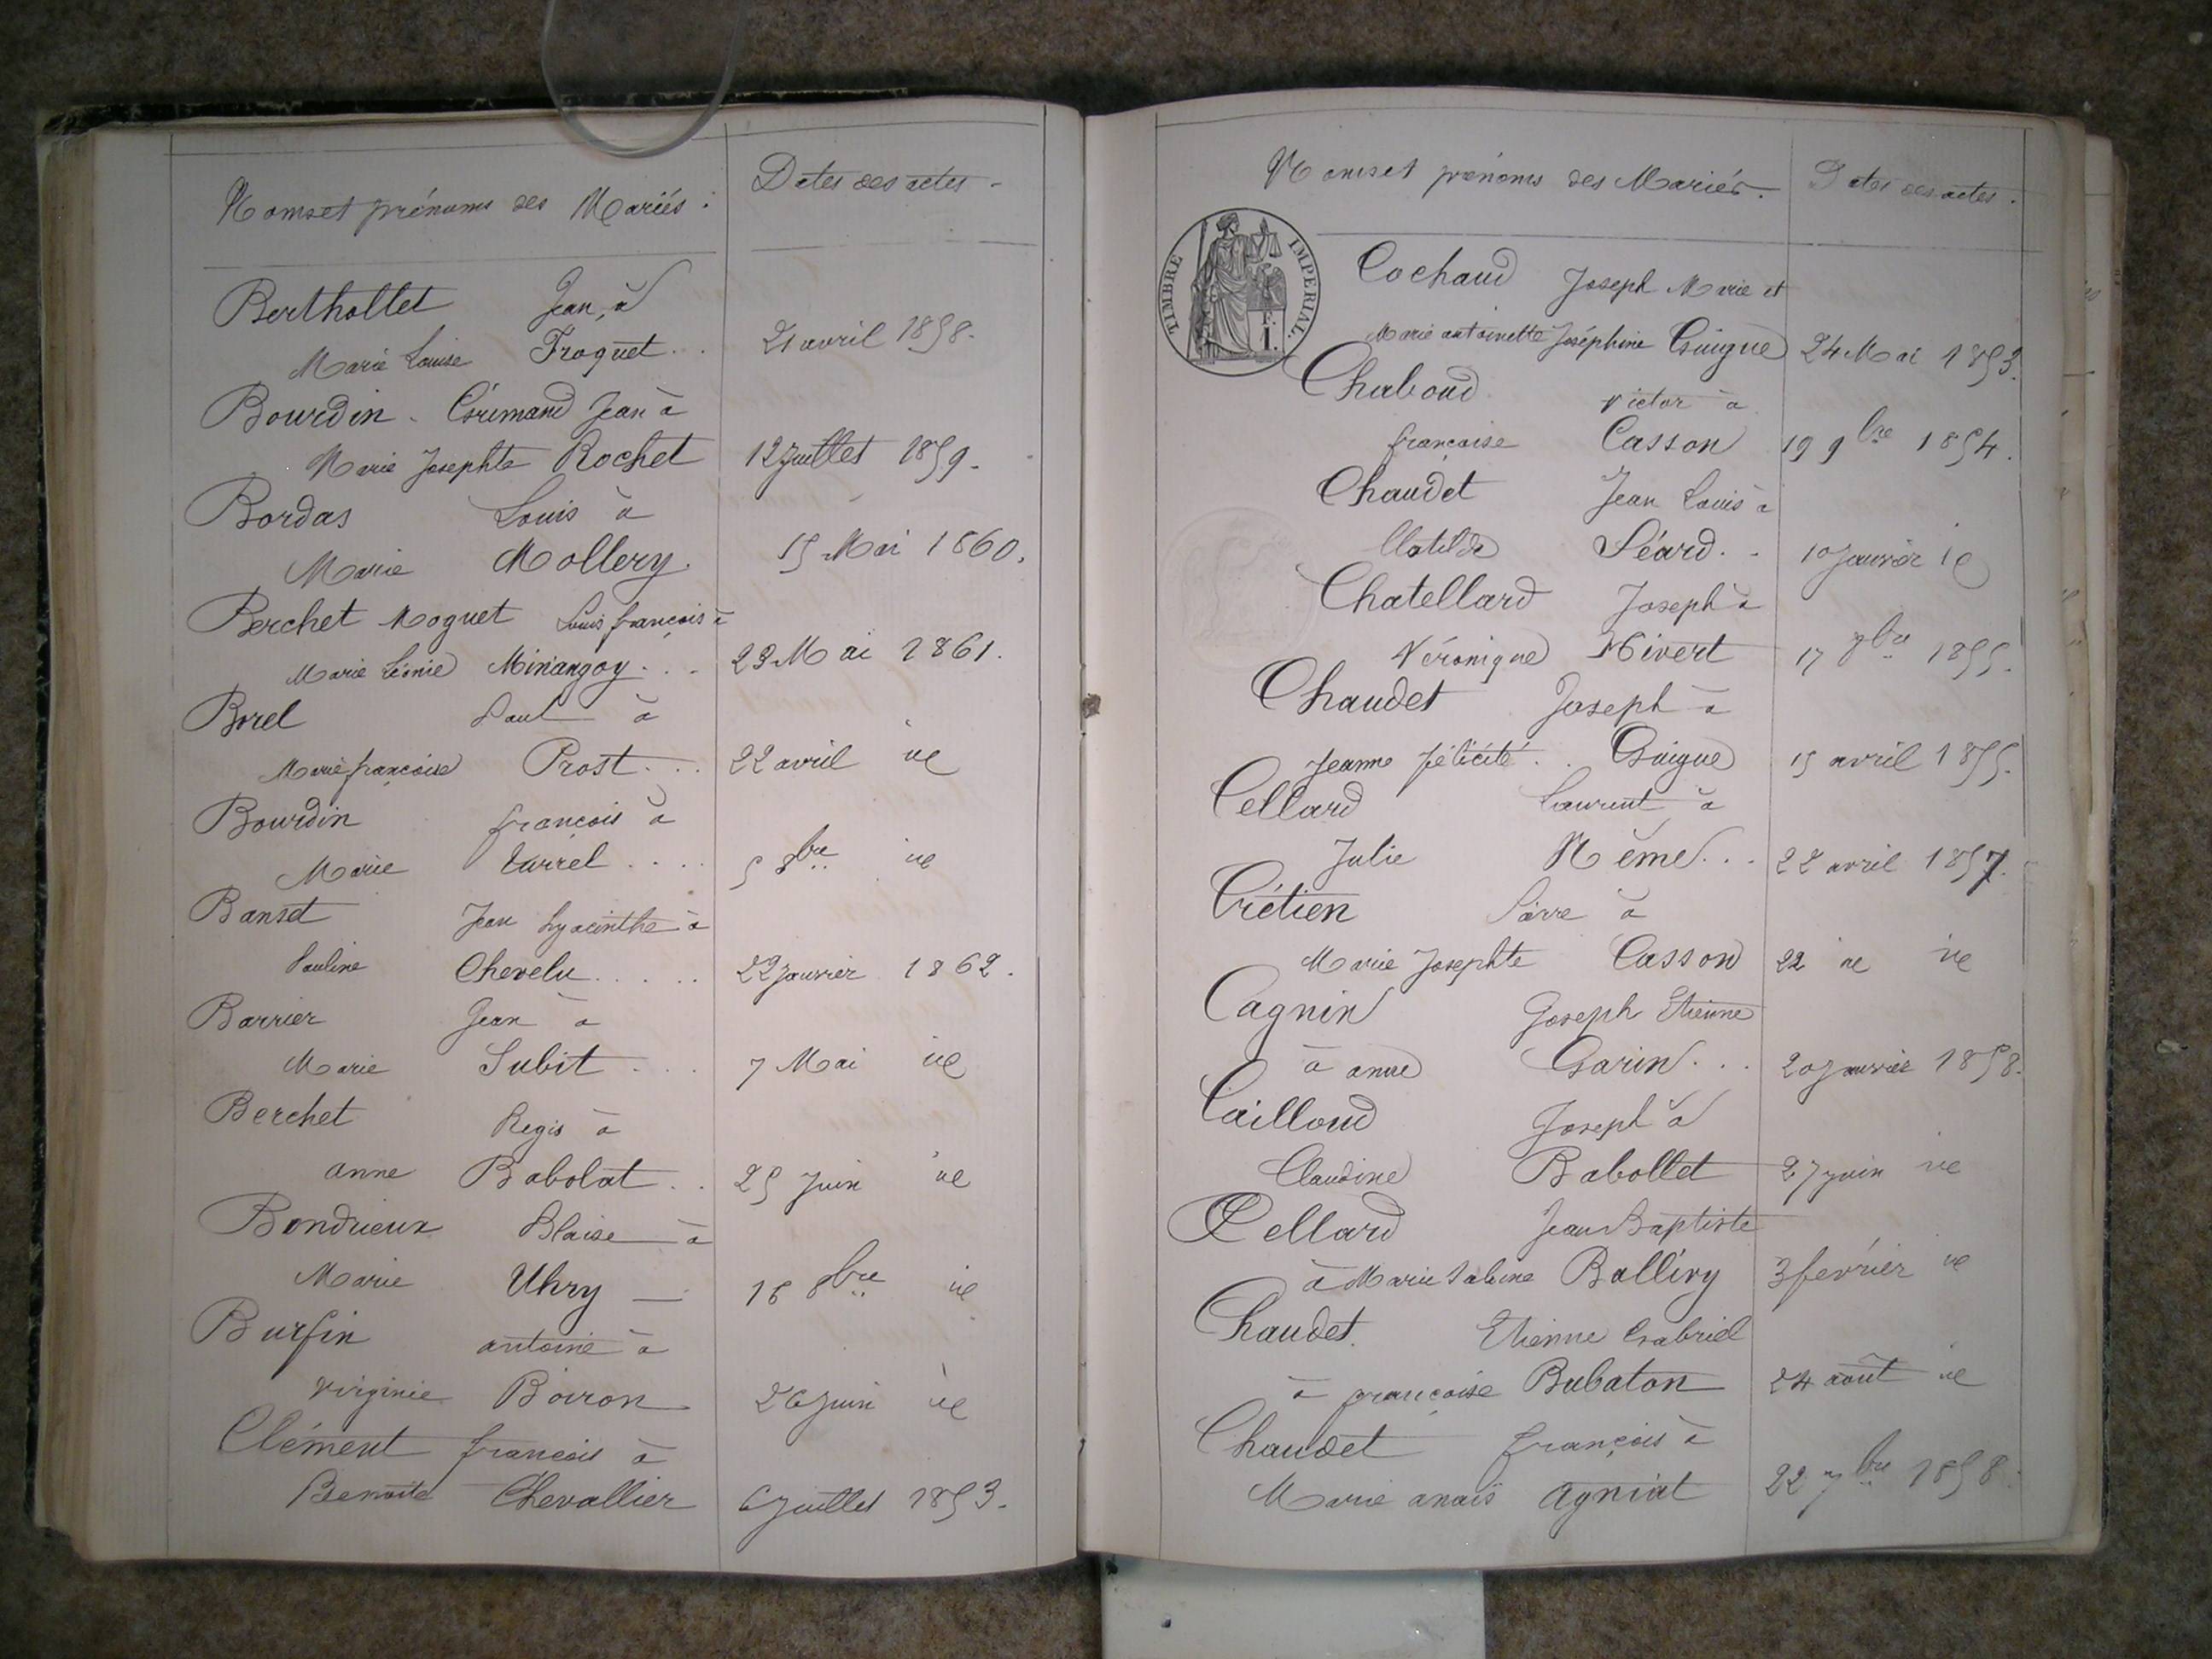 Noms et prénoms des Mariés :
Dates des actes -
Berthollet Jean, à
Marie Louise Froquet . . 21 avril 1858.
Bourdin - Grimand Jean à
Marie Josephte Rochet 12 Juillet 1859.
Bordas Louis à
Marie Mollery. 15 Mai 1860.
Berchet Moguet Louis françois à
Marie Léonie Minangoy . . . 23 Mai 1861.
Borel Paul à
Marie françoise Prost . . . 22 avril ie
Bourdin françois à
Marie Varrel . . . . 5 8bre ie
Banset Jean hyacinthe à
Pauline Chevelu . . . . . 22 Janvier 1862.
Barrier Jean à
Marie Subit . . . 7 Mai ie
Berchet Regis à
anne Babolat . . 25 Juin ie
Bondrieux Blaise à
Marie Uhry — 16 8bre ie
Burfin antoine à
Virginie Boiron 26 Juin ie
Clément françois à
Benoite Chevallier 6 Juillet 1853.
Noms et prénoms des Mariés.
Dates des actes.
TIMBRE IMPERIAL.
F.
1.
Cochaud Joseph Marie et
Marie antoinette Joséphine Guigue 24 Mai 1853.
Chaboud Victor à
françoise Casson 19 9bre 1854.
Chaudet Jean Louis à
Clotilde Séard . . 10 Janvier ie
Chatellard Joseph à
Véronique Nivert 17 bre 1855.
Chaudet Joseph à
Jeanne félicité . . Guigue 15 avril 1855.
Cellard Laurent à
Julie Nême . . . 22 avril 1857.
Crétien Pierre à
Marie Josephte Casson 22 ie ie
Cagnin Joseph Etienne
à anne Garin . . . 20 Janvier 1858.
Cailloud Joseph à
Claudine Babollet 27 juin ie
Cellard Jean Baptiste
à Marie Sabine Ballivy 3 février ie
Chaudet. Etienne Gabriel
à françoise Bubaton 24 août ie
Chaudet françois à
Marie anaïs Agniat 22 7bre 1858.